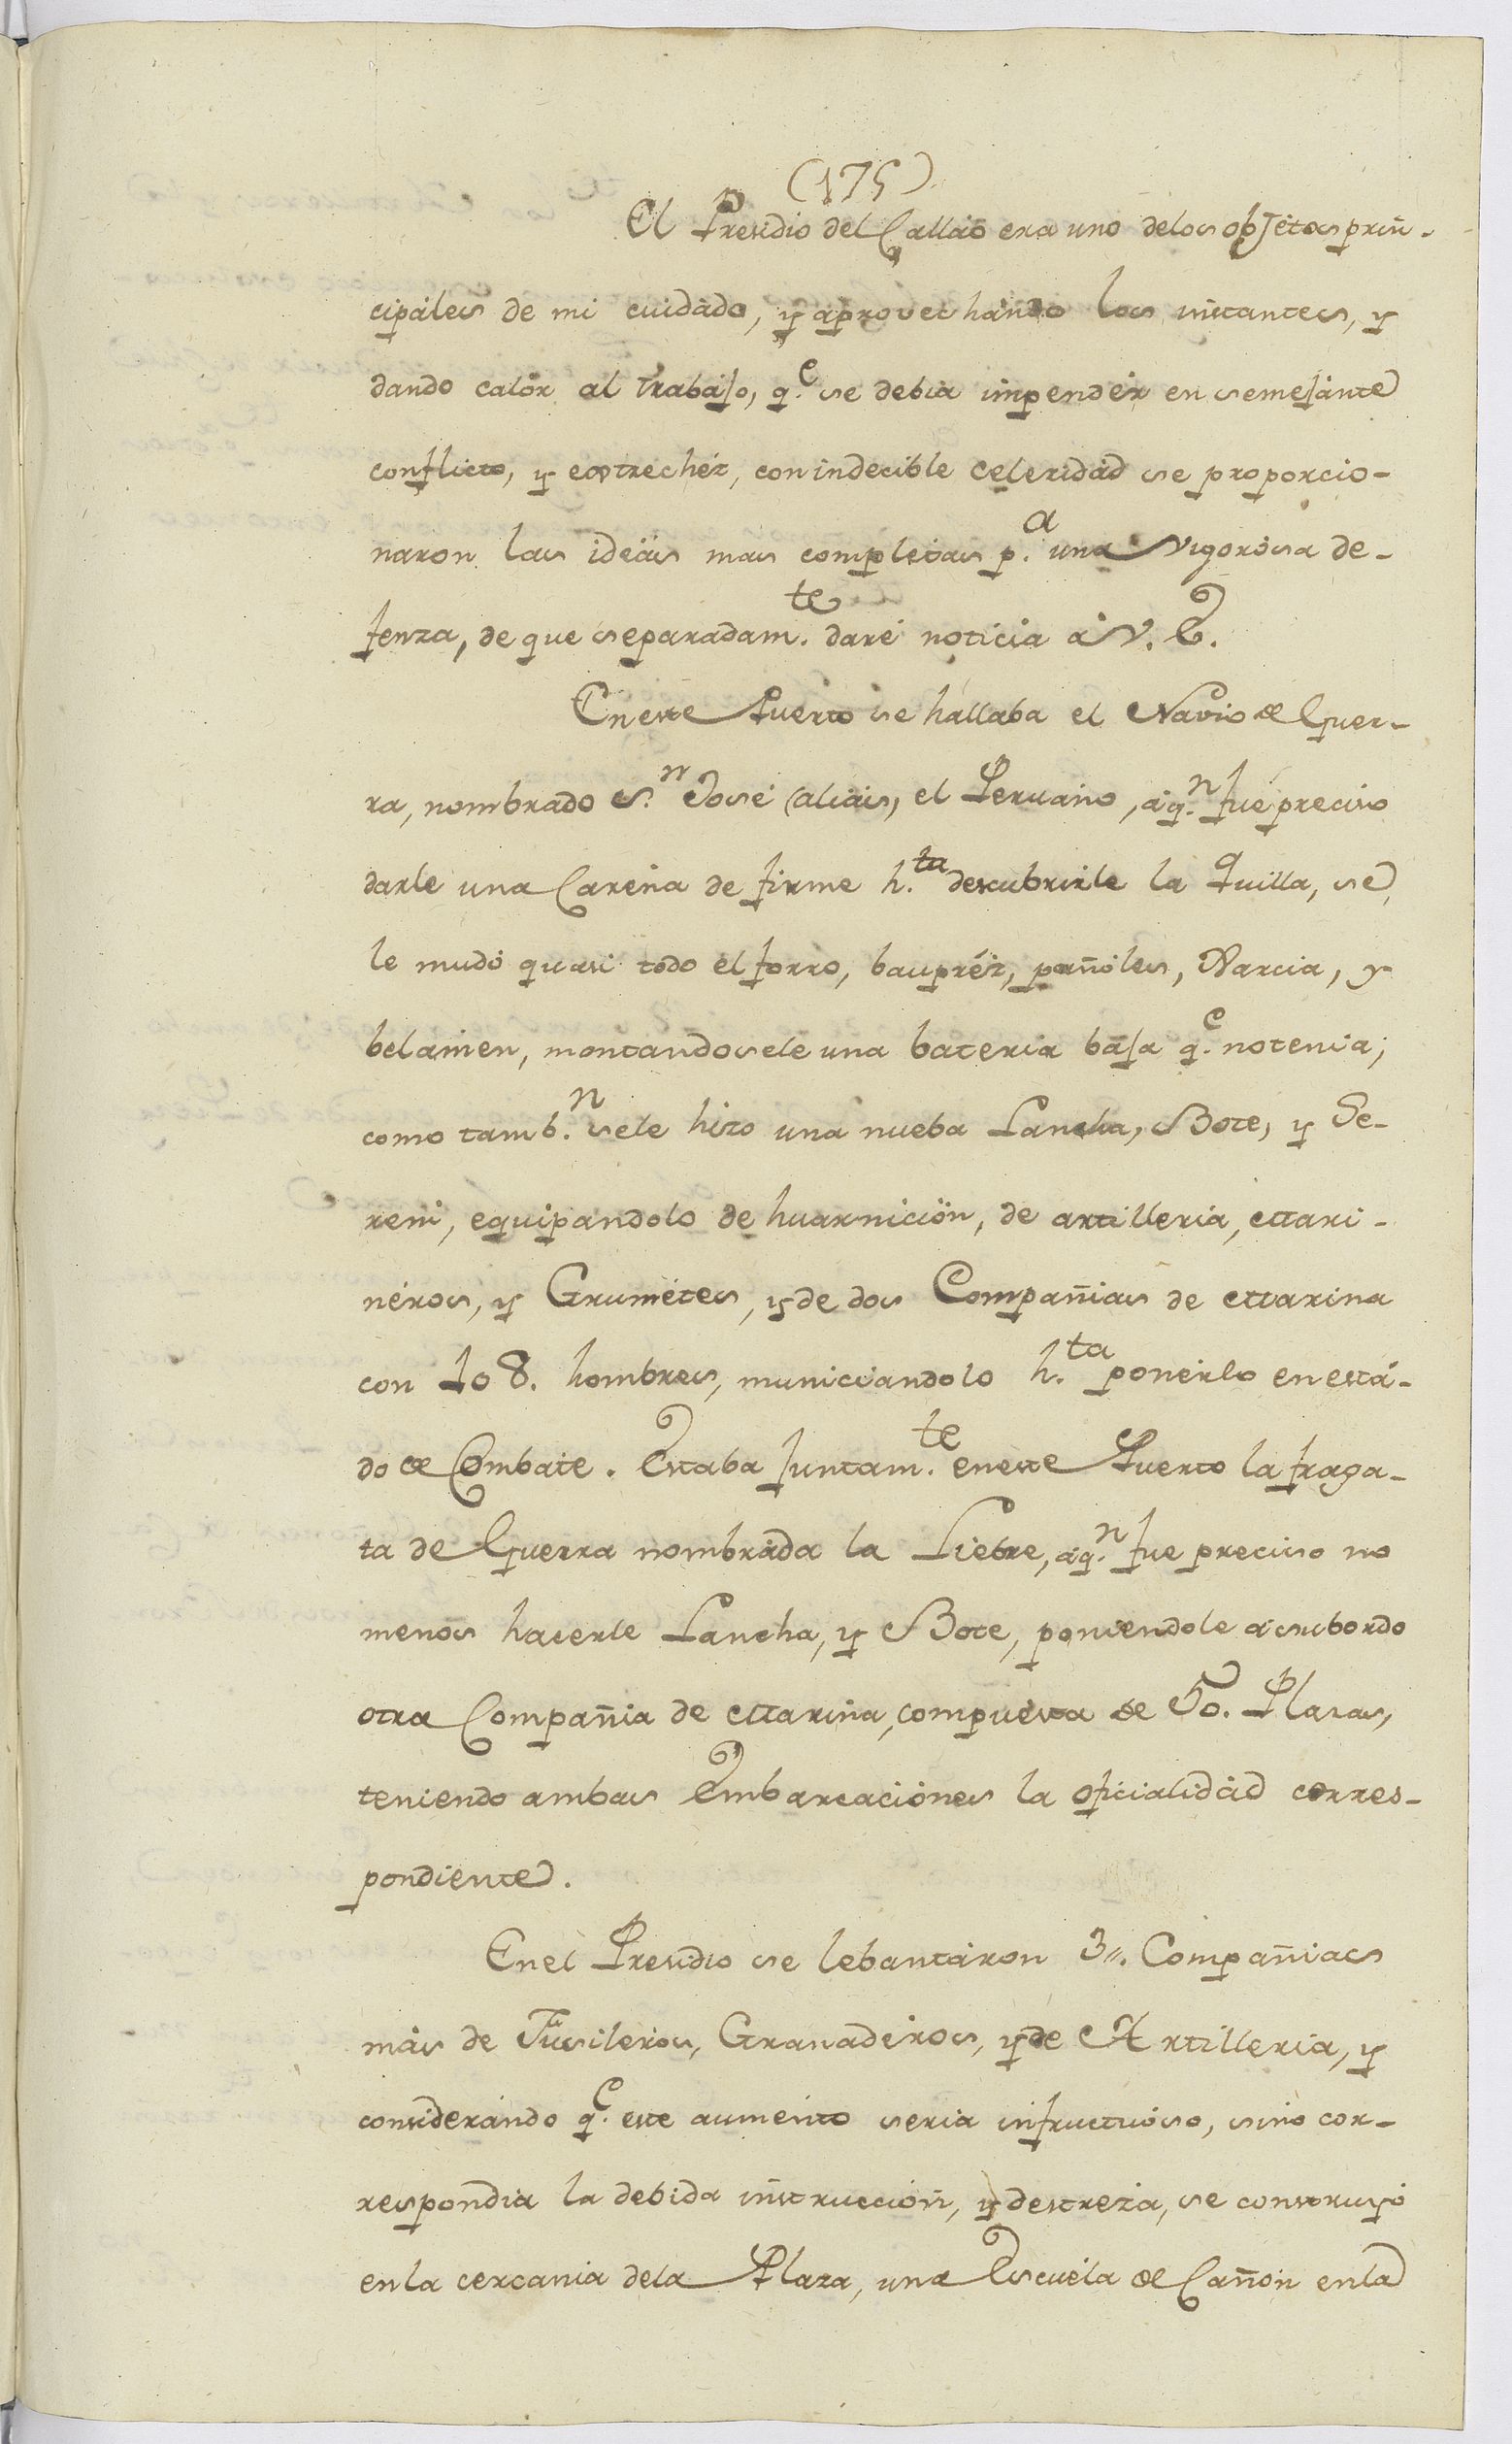 (175)
El Presidio del Callao era uno delos objetos prin-
cipales de mi cuidado, y aprovechando los instantes, y
dando calór al trabajo, q.e se debia impendér en semejante
conflicto, y estrechéz, con indecible celeridad se proporcio-
naron las ideas mas completas p.a una vigorosa de-
fenza, de que separadam.te daré noticia á V. E.
En este Puerto se hallaba el Navio de Guer-
ra, nombrado S.n José (alias, el Peruano, áq.n fué preciso
darle una Carena de firme h.ta descubrirle la Quilla, se
le mudó quasi todo el forro, baupréz, pañoles, Xarcia, y
belamen, montandosele una bateria baja q.e notenia;
como tamb.n sele hizo una nueba Lancha, Bote, y Se-
reni, equipandolo de huarnición, de artilleria, Mari-
néros, y Grumétes, y de dos Compañias de Marina
con 108. hombres, municiandolo h.ta ponerlo en está-
do de Combate. Estaba juntam.te eneste Puerto la fraga-
ta de Guerra nombrada la Liebre, áq.n fue preciso no
menos hacerle Lancha, y Bote, poniendole á subordo
otra Compañia de Marina, compuesta de 50. Plazas,
teniendo ambas Embarcaciónes la oficialidad corres-
pondiente.
Enel Presidio se lebantáron 3,,. Compañias
más de Fusileros, Granaderos, y de Artilleria, y
considerándo q.e este aumento seria infructuoso, sino cor-
respondia la debida instrucción, y destreza, se construyó
enla cercania dela Plaza, una Escuela de Cañon enla